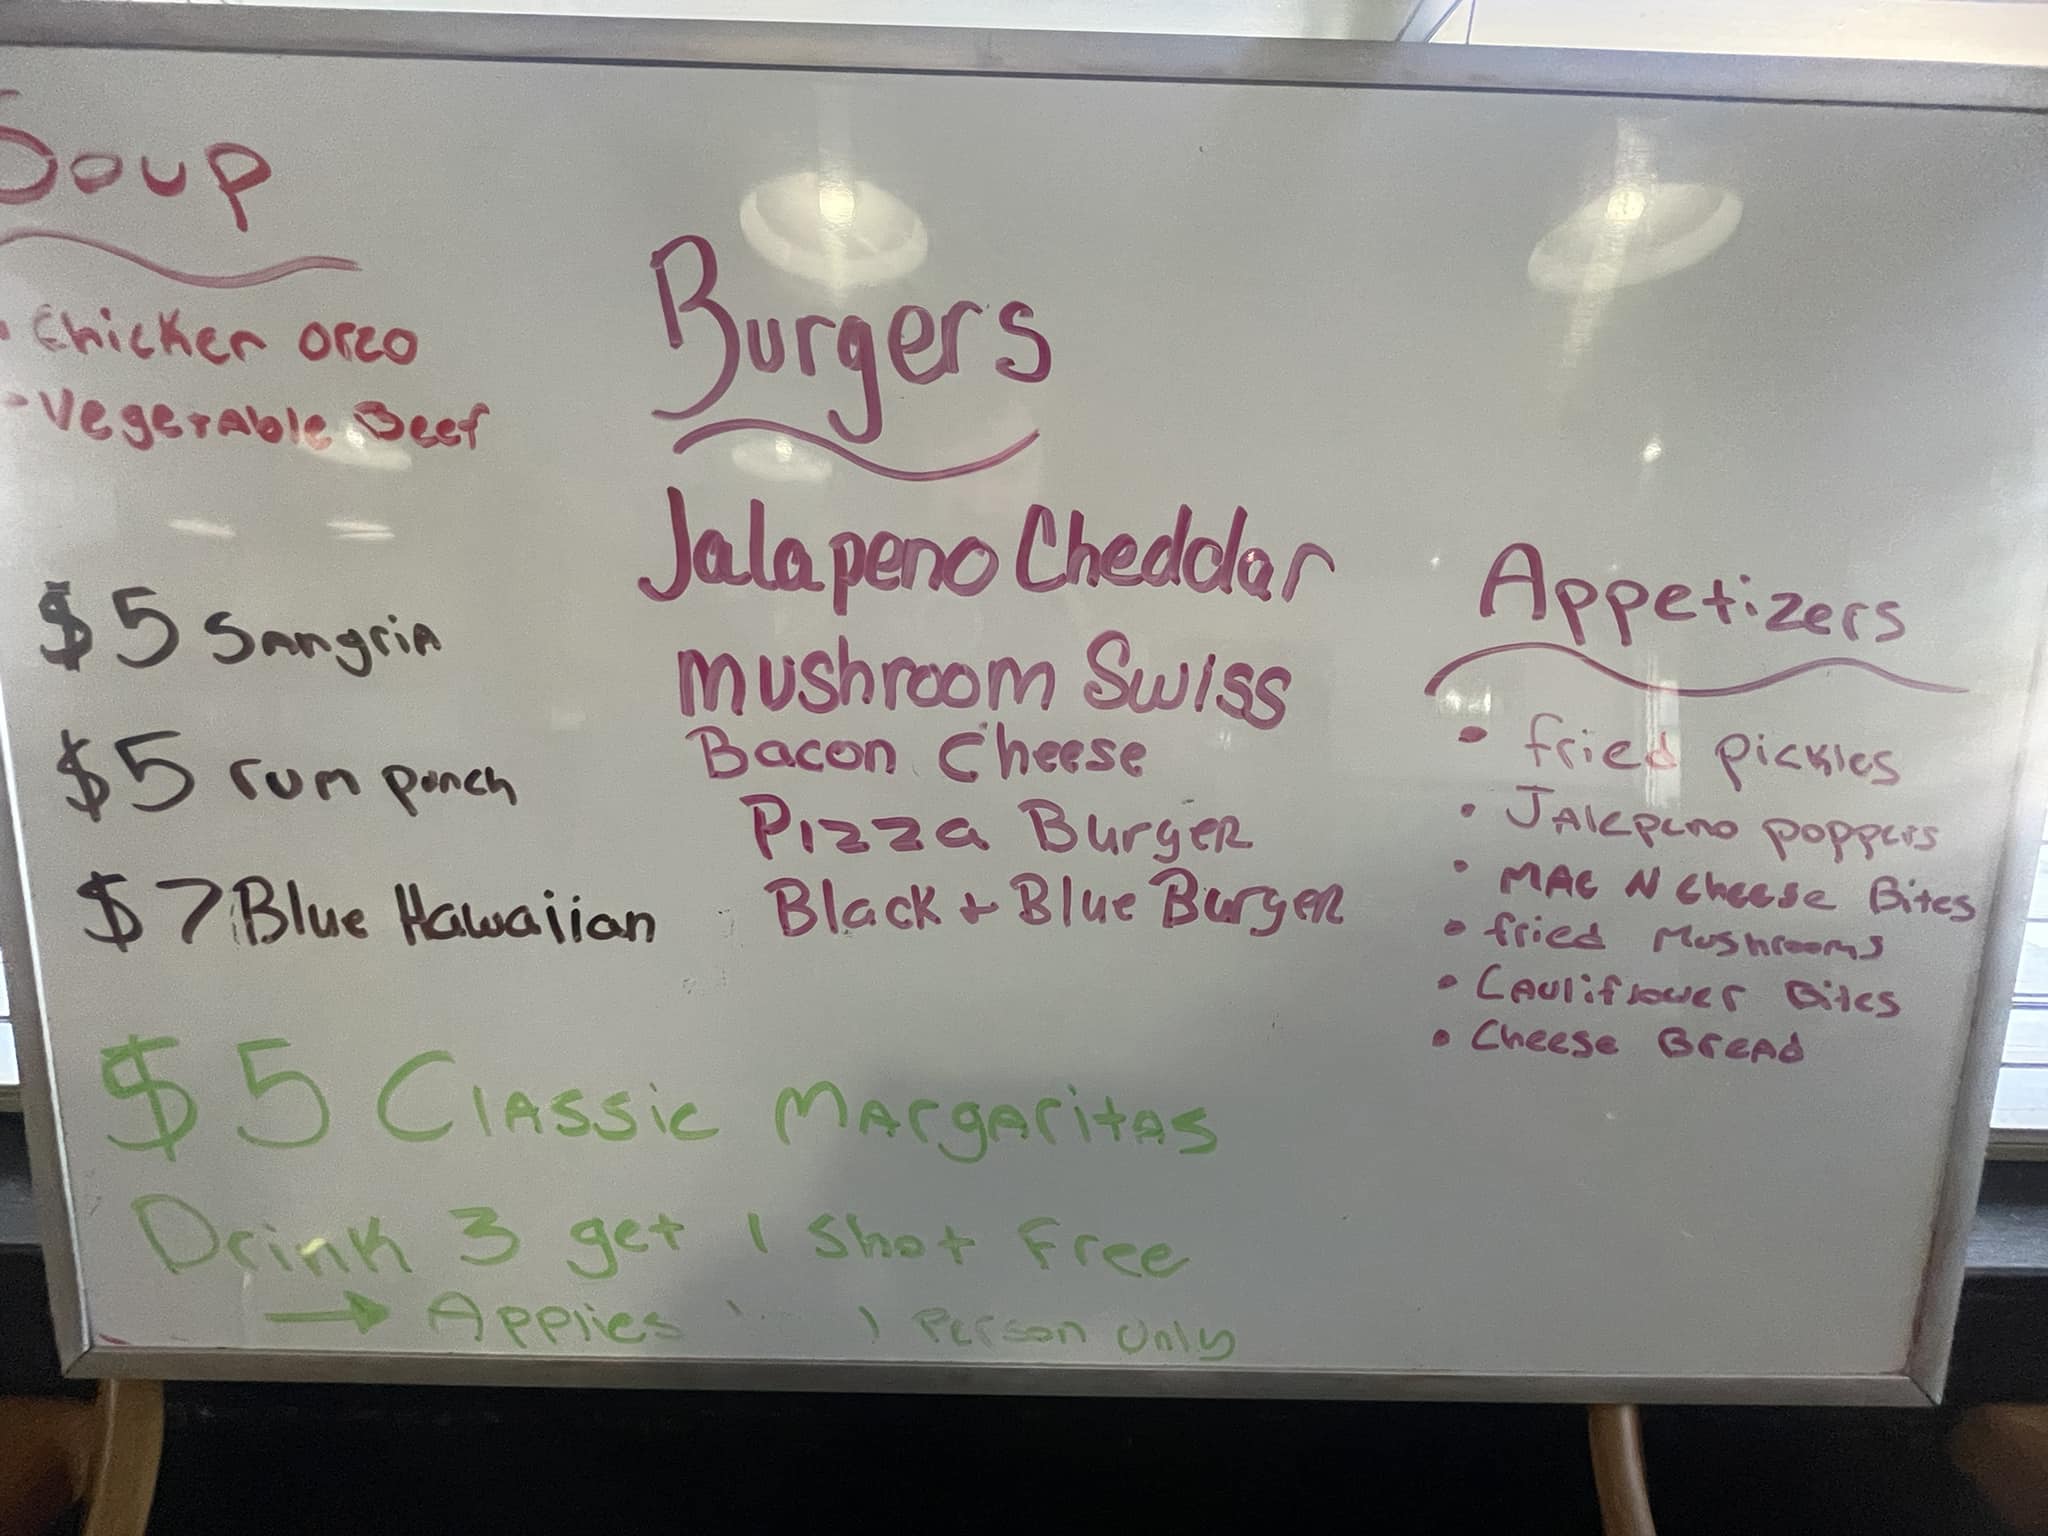 Soup
• Chicken orzo
- Vegetable Beef
$5 Sangria
$5 rum punch
$7 Blue Hawaiian
Burgers
Jalapeno Cheddar
Mushroom Swiss
Bacon Cheese
Pizza Burger
Black + Blue Burger
Appetizers
• fried pickles
• Jalepeno poppers
• Mac N Cheese Bites
• fried Mushrooms
• Cauliflower Bites
• Cheese Bread
$5 Classic Margaritas
Drink 3 get 1 Shot Free
→ Applies 1 Person Only